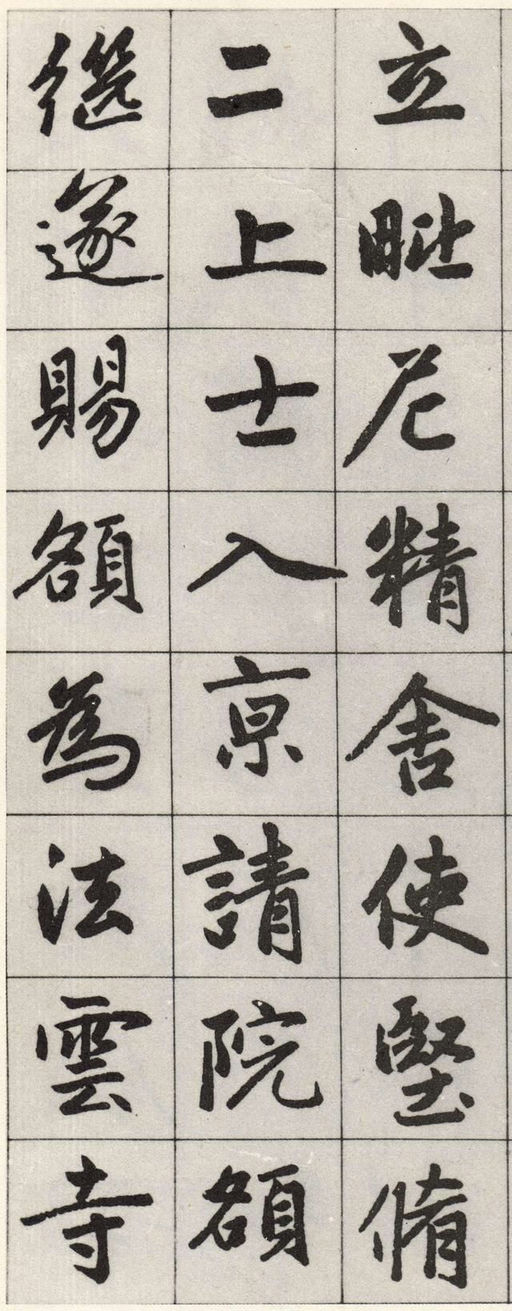 立毗尼精舍使堅脩
二上士入京請院額
继遂賜額為法雲寺